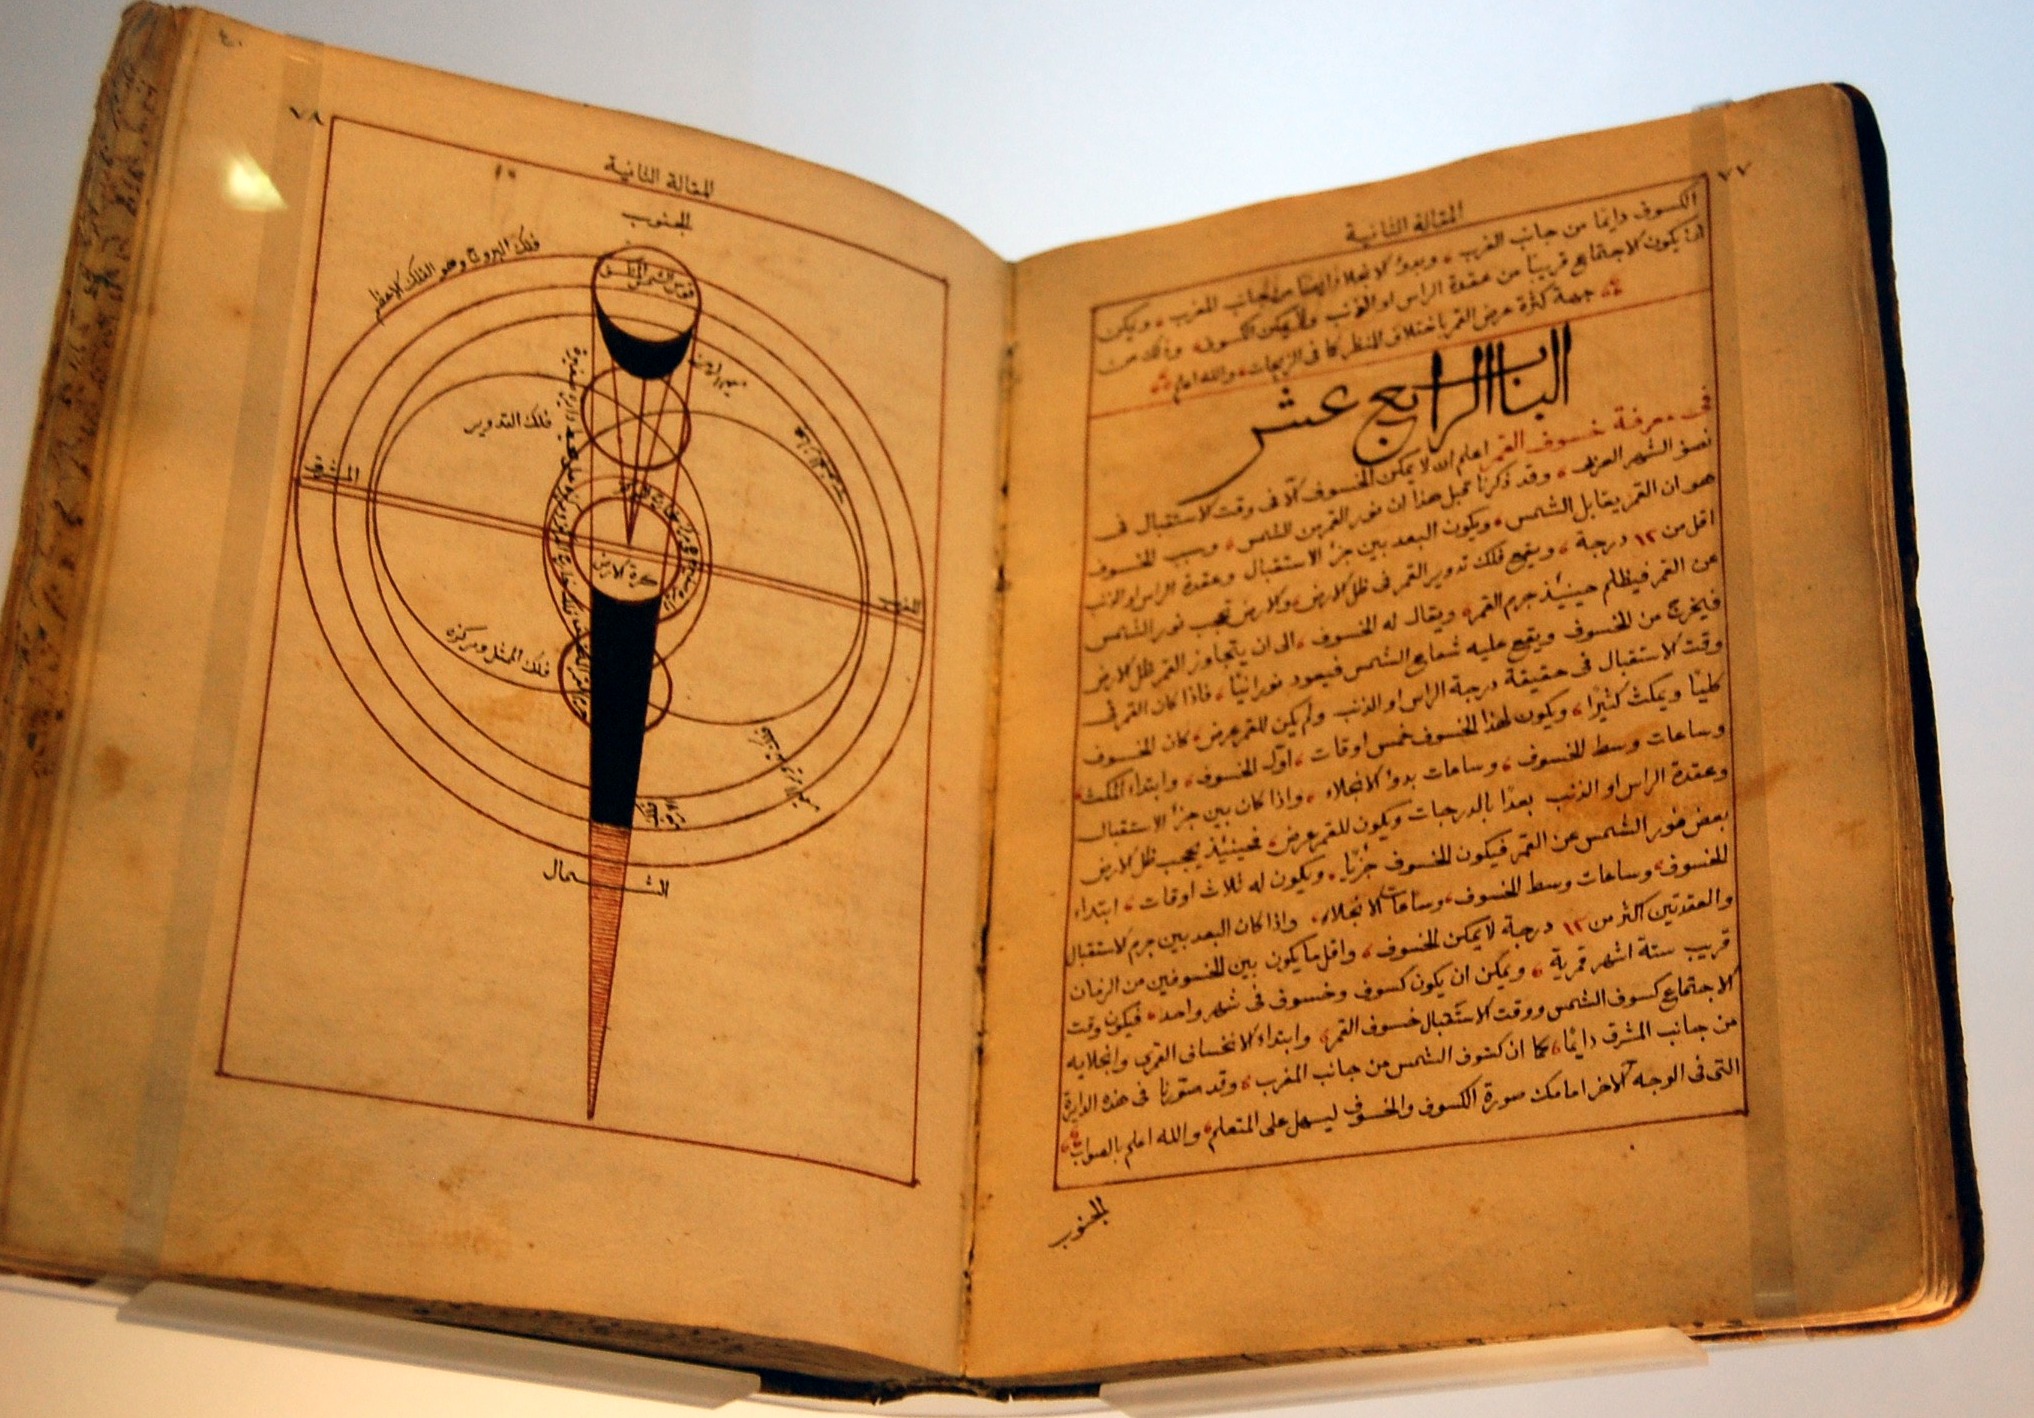 ٧٧
المقالة الثانية
الكسوف دايما من جانب الغرب وبدو الانجلا ايضا من جانب المغرب ويمكن
ان يكون الاجتماع قريبا من عقدة الراس او الذنب ولا يمكن الكسوف وذلك من
جهة كثرة عرض القمر باختلاف المنظر كما في الزيجات والله اعلم
الباب الرابع عشر
في معرفة خسوف القمر اعلم انه لا يمكن الخسوف الا في وقت الاستقبال في
نصف الشهر العربي وقد ذكرنا قبل هذا ان نور القمر من الشمس وسبب الخسوف
هو ان القمر يقابل الشمس ويكون البعد بين جزء الاستقبال وعقدة الراس او الذنب
اقل من ١٢ درجة ويقع فلك تدوير القمر في ظل الارض والارض تحجب نور الشمس
عن القمر فيظلم حينيئذ جرم القمر ويقال له الخسوف الى ان يتجاوز القمر ظل الارض
فيخرج من الخسوف ويقع عليه شعاع الشمس فيعود نورانيا فاذا كان القمر في
وقت الاستقبال في حقيقة درجة الراس او الذنب ولم يكن للقمر عرض كان الخسوف
كليا ويمكث كثيرا ويكون لهذا الخسوف خمس اوقات اول الخسوف وابتداء المكث
وساعات وسط الخسوف وساعات بدو الانجلاء واذا كان بين جزء الاستقبال
وعقدة الراس او الذنب بعدا بالدرجات ويكون للقمر عرض فحينيئذ يحجب ظل الارض
بعض نور الشمس عن القمر فيكون الخسوف جزيا ويكون له ثلاث اوقات ابتداء
الخسوف وساعات وسط الخسوف وساعات الانجلاء واذا كان البعد بين جرم الاستقبال
والعقدتين اكثر من ١٢ درجة لا يمكن الخسوف واقل ما يكون بين الخسوفين من الزمان
قريب ستة اشهر قمرية ويمكن ان يكون كسوف وخسوف في شهر واحد فيكون وقت
الاجتماع كسوف الشمس ووقت الاستقبال خسوف القمر وابتداء الانخساف القمري وانجلايه
من جانب المشرق دايما كما ان كسوف الشمس من جانب المغرب وقد صورنا في هذه الدايرة
التى في الوجه الاخر امامك صورة الكسوف والخسوف ليسهل على المتعلم والله اعلم بالصواب
الجنوب
٧٨
المقالة الثانية
الجنوب
فلك البروج وهو الفلك الاعظم
فلك التدوير
المشرق
المغرب
كرة الارض
فلك الممثل ومركزه
الشمال